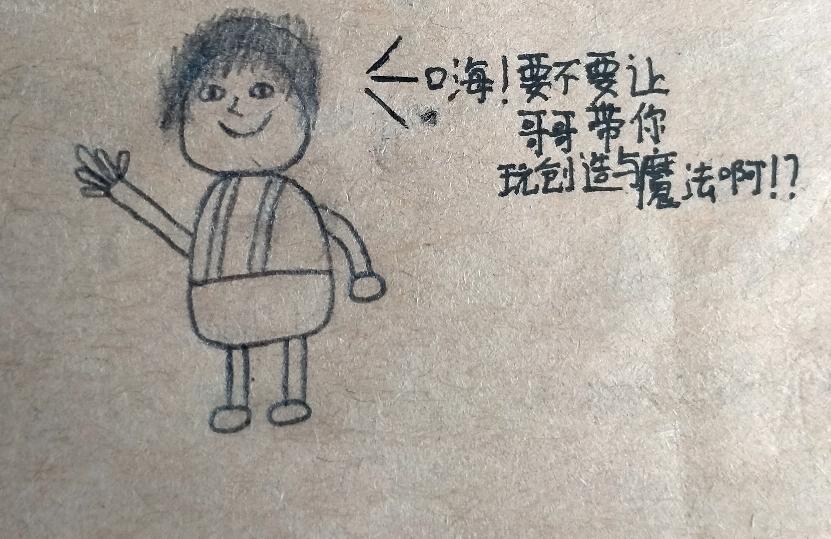 嗨!要不要让
哥哥带你
玩创造与魔法啊!?